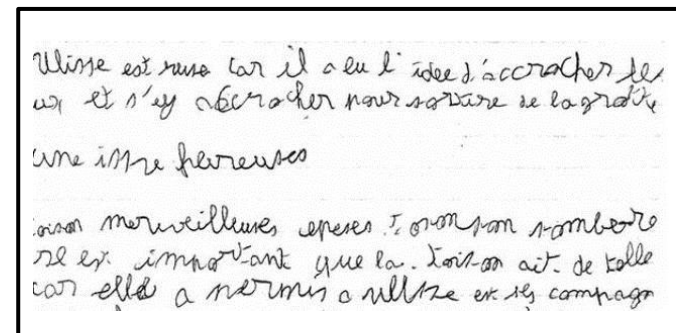 Ulisse est ruse car il a eu l'idee d'accrocher les
ux et s'y accrocher pour sortire de la grotte
une issue heureuses
toison merveilleuses epeses toison sombere
il est important que la toison ait de telle
car elle a permis a Ulisse et ses compagn